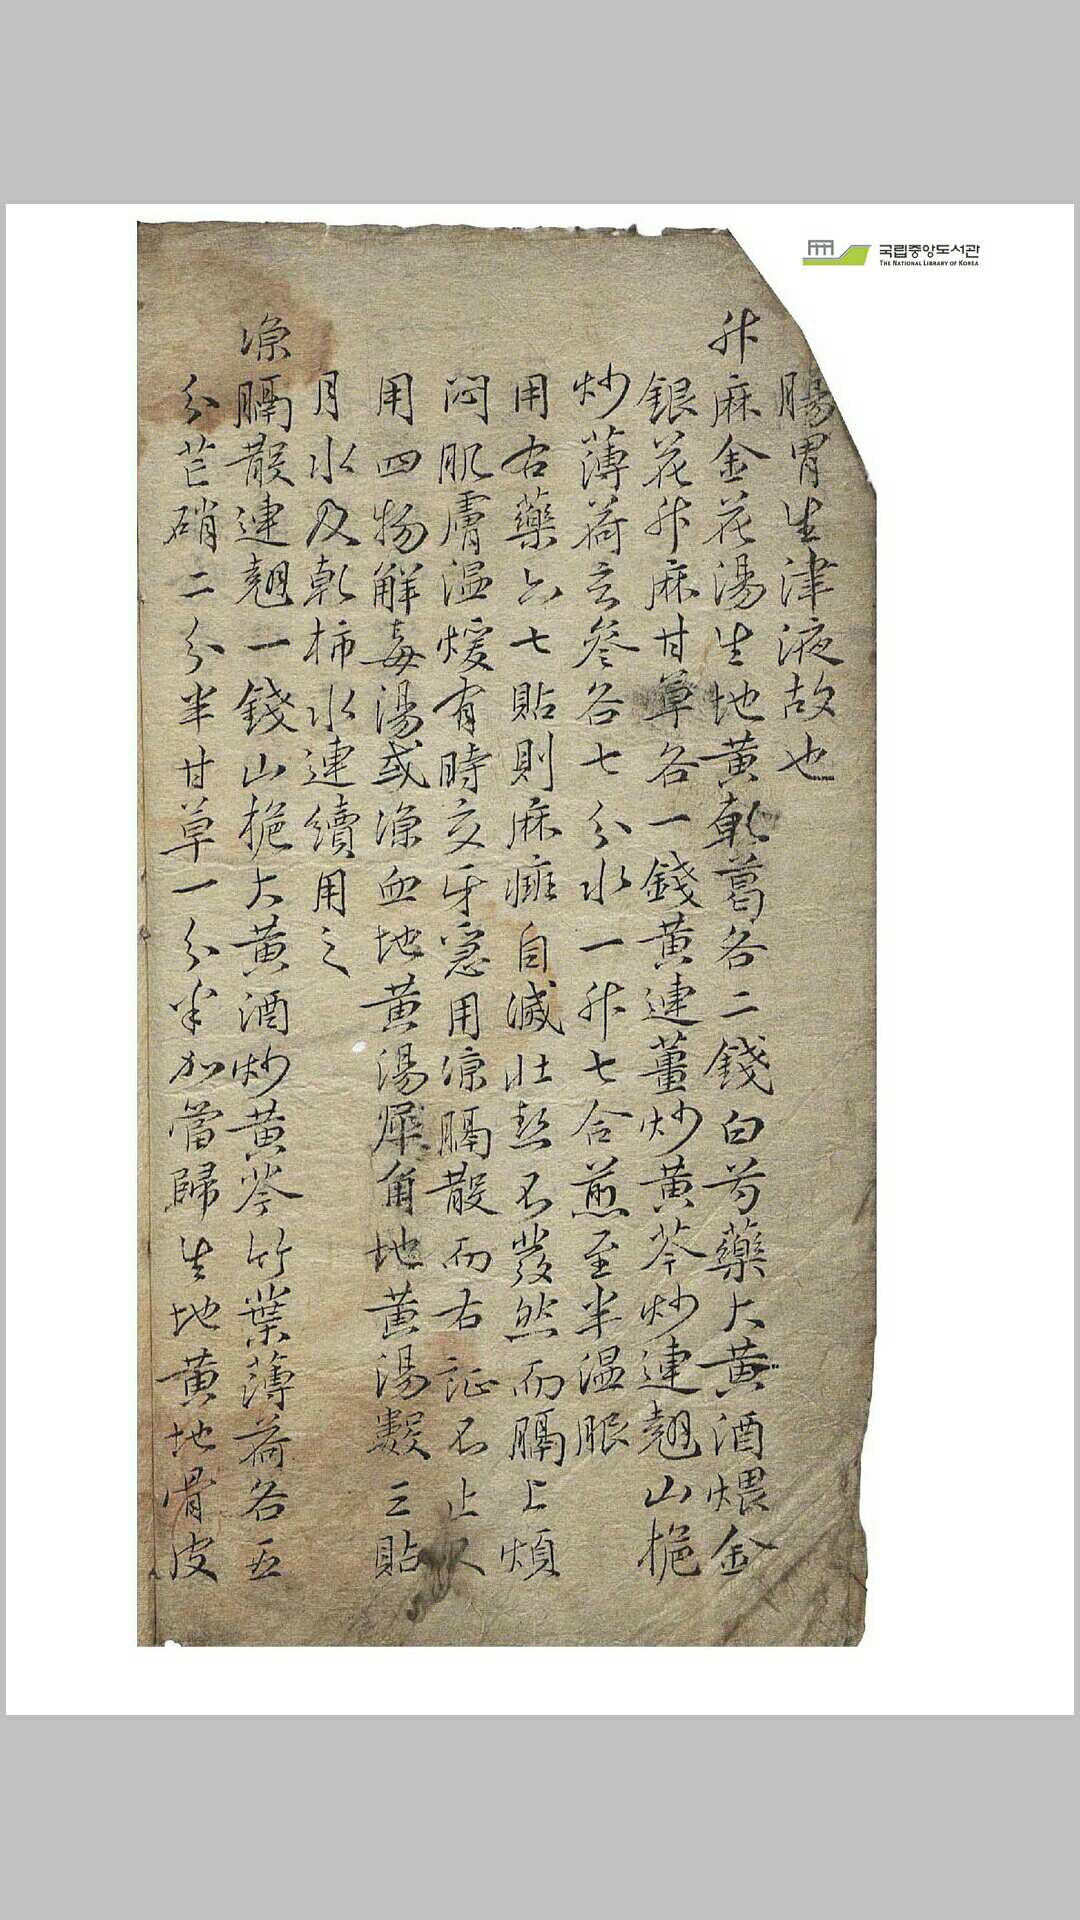 국립중앙도서관
THE NATIONAL LIBRARY OF KOREA
腸胃生津液故也
升麻金花湯生地黃乾葛各二錢白芍藥大黃酒煨金
銀花升麻甘草各一錢黃連薑炒黃芩炒連翹山梔
炒薄荷玄參各七分水一升七合煎至半溫服
用右藥六七貼則麻癍自減壯熱不發然而膈上煩
悶肌膚溫煖有時交牙急用凉膈散而右証不止又
用四物解毒湯或凉血地黃湯犀角地黃湯數三貼
月水及乾柿水連續用之
凉膈散連翹一錢山梔大黃酒炒黃芩竹葉薄荷各五
分芒硝二分半甘草一分半加當歸生地黃地骨皮